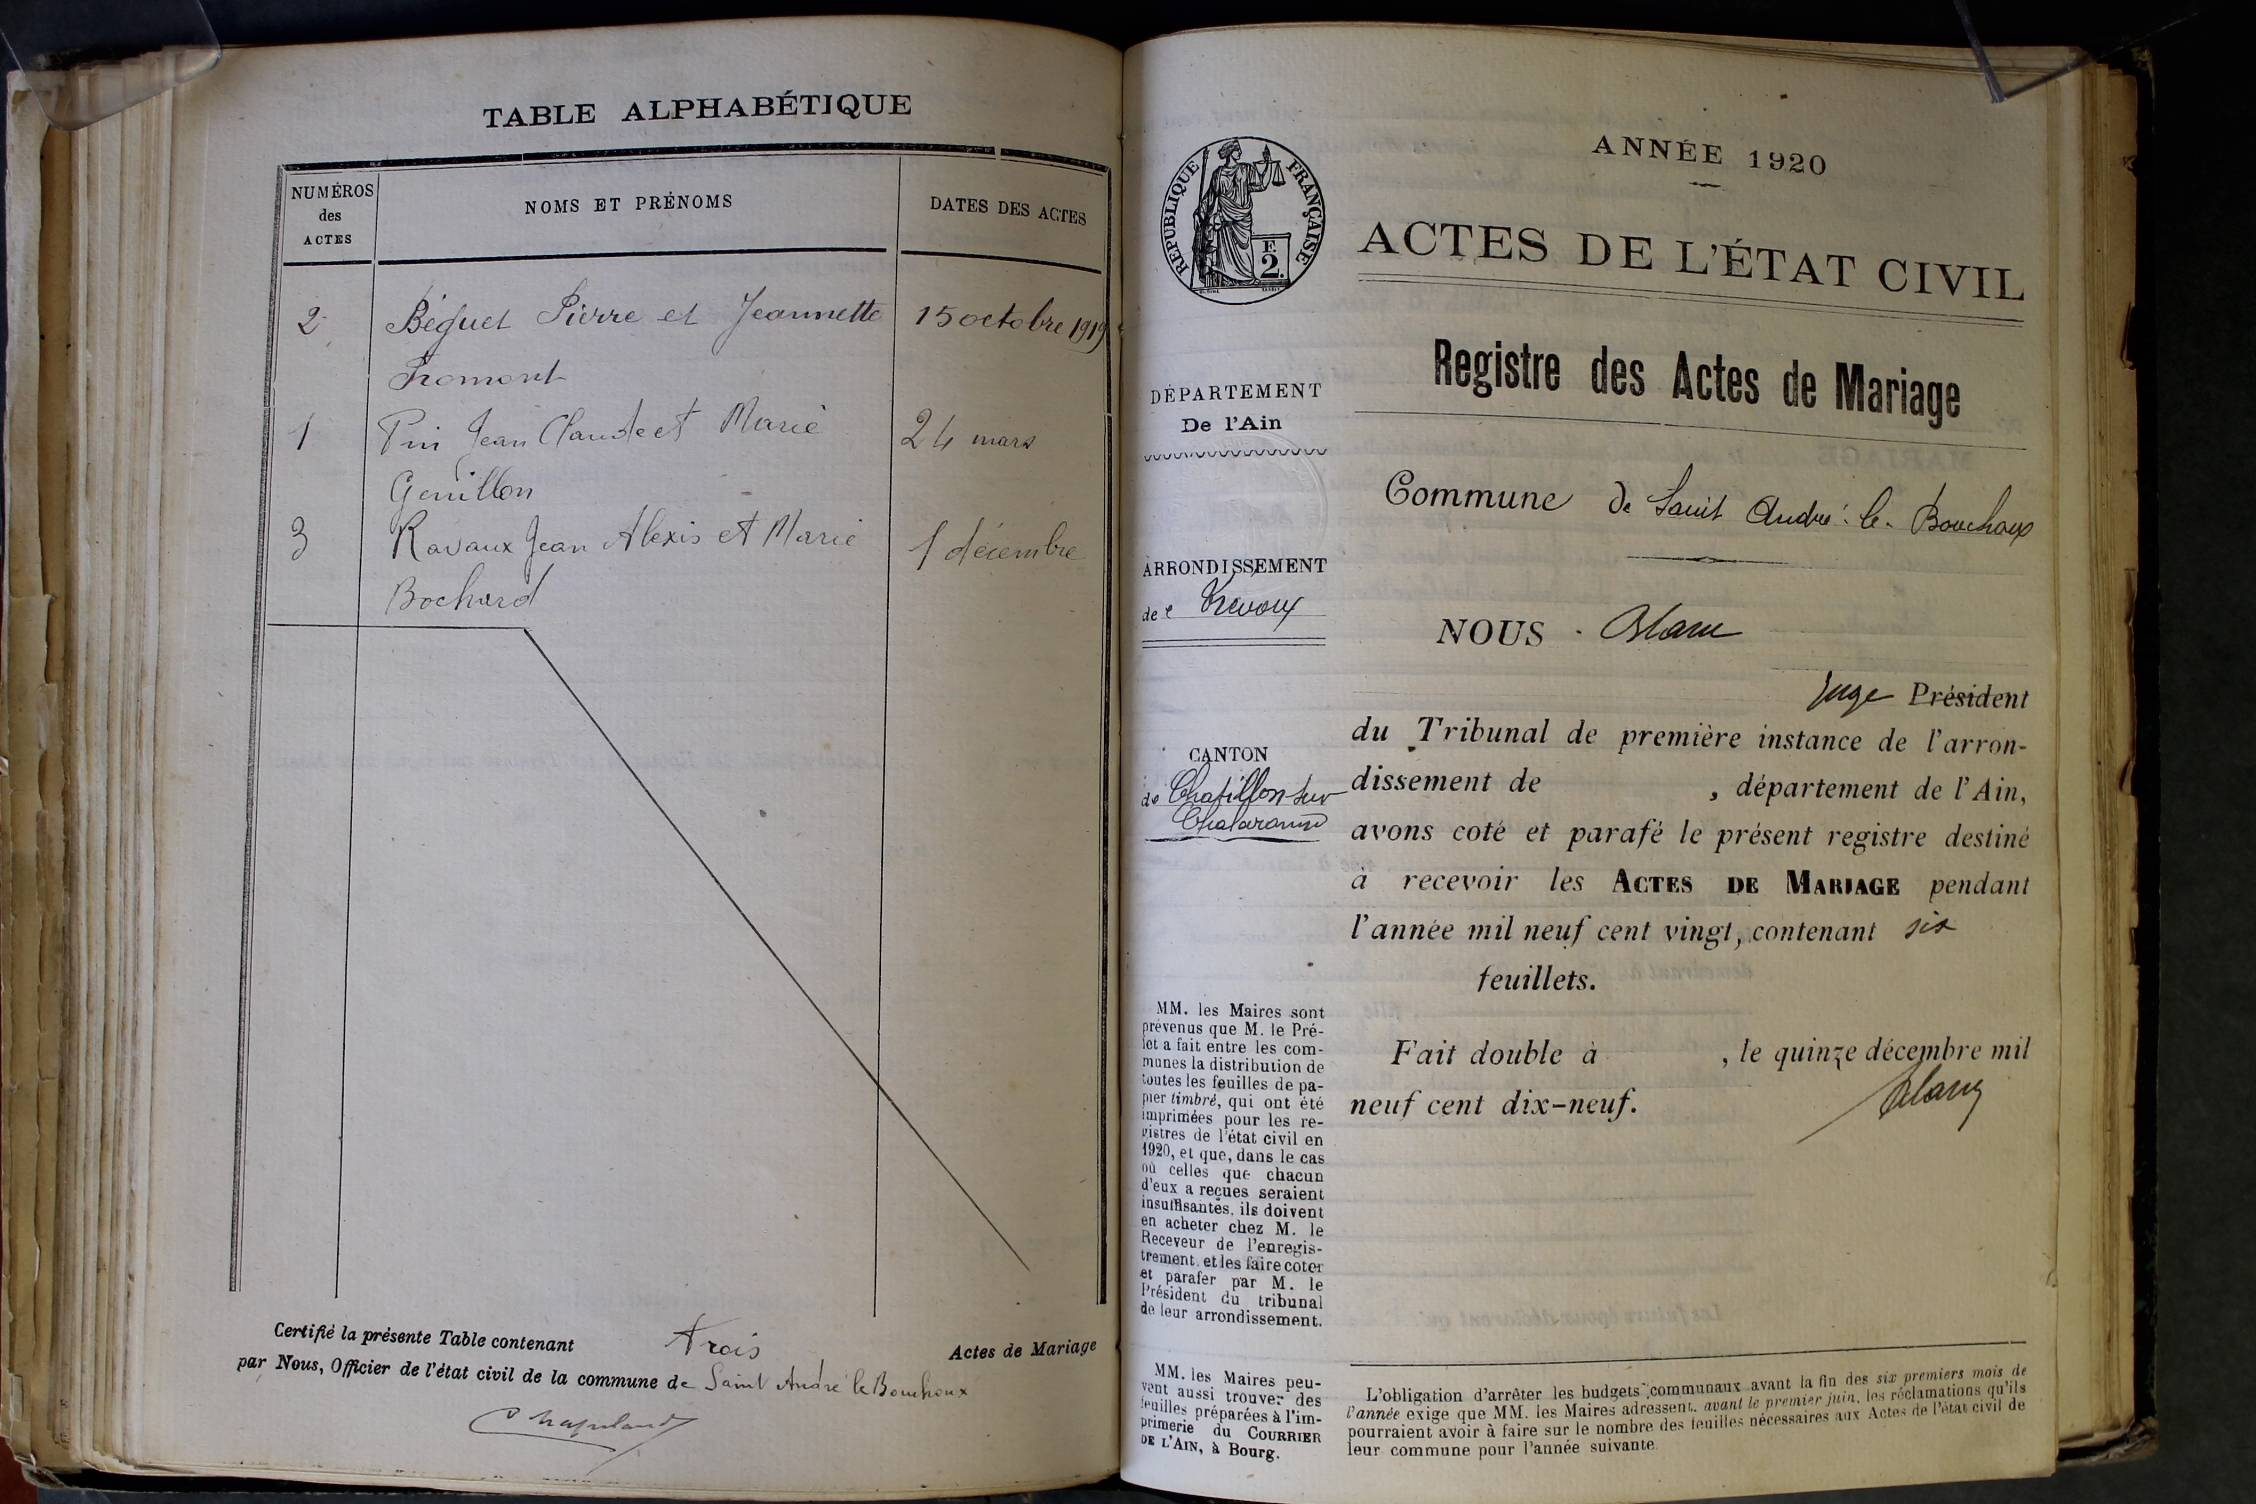 TABLE ALPHABÉTIQUE
NUMÉROS des ACTES
NOMS ET PRÉNOMS
DATES DES ACTES
2 Béguet Pierre et Jeannette 15 octobre 1919
Fromont
1 Pin Jean Claude et Marie 24 mars
Genillon
3 Ravaux Jean Alexis et Marie 1 décembre
Bochard
Certifié la présente Table contenant trois Actes de Mariage
par Nous, Officier de l'état civil de la commune de Saint André le Bouchoux
ANNÉE 1920
RÉPUBLIQUE FRANÇAISE
F.
2.
ACTES DE L'ÉTAT CIVIL
Registre des Actes de Mariage
DÉPARTEMENT
De l'Ain
Commune de Saint André-le-Bouchoux
ARRONDISSEMENT
de Trévoux
NOUS Blanc
Juge Président
du Tribunal de première instance de l'arron-
dissement de , département de l'Ain,
avons coté et parafé le présent registre destiné
à recevoir les ACTES DE MARIAGE pendant
l'année mil neuf cent vingt, contenant six
feuillets.
CANTON
de Chatillon-sur
Chalaronne
Fait double à , le quinze décembre mil
neuf cent dix-neuf.
Blanc
MM. les Maires sont
prévenus que M. le Pré-
fet a fait entre les com-
munes la distribution de
toutes les feuilles de pa-
pier timbré, qui ont été
imprimées pour les re-
gistres de l'état civil en
1920, et que, dans le cas
où celles que chacun
d'eux a reçues seraient
insuffisantes, ils doivent
en acheter chez M. le
Receveur de l'enregis-
trement, et les faire coter
et parafer par M. le
Président du tribunal
de leur arrondissement.
MM. les Maires peu-
vent aussi trouver des
feuilles préparées à l'im-
primerie du COURRIER
DE L'AIN, à Bourg.
L'obligation d'arrêter les budgets communaux avant la fin des six premiers mois de
l'année exige que MM. les Maires adressent, avant le premier juin, les réclamations qu'ils
pourraient avoir à faire sur le nombre des feuilles nécessaires aux Actes de l'état civil de
leur commune pour l'année suivante